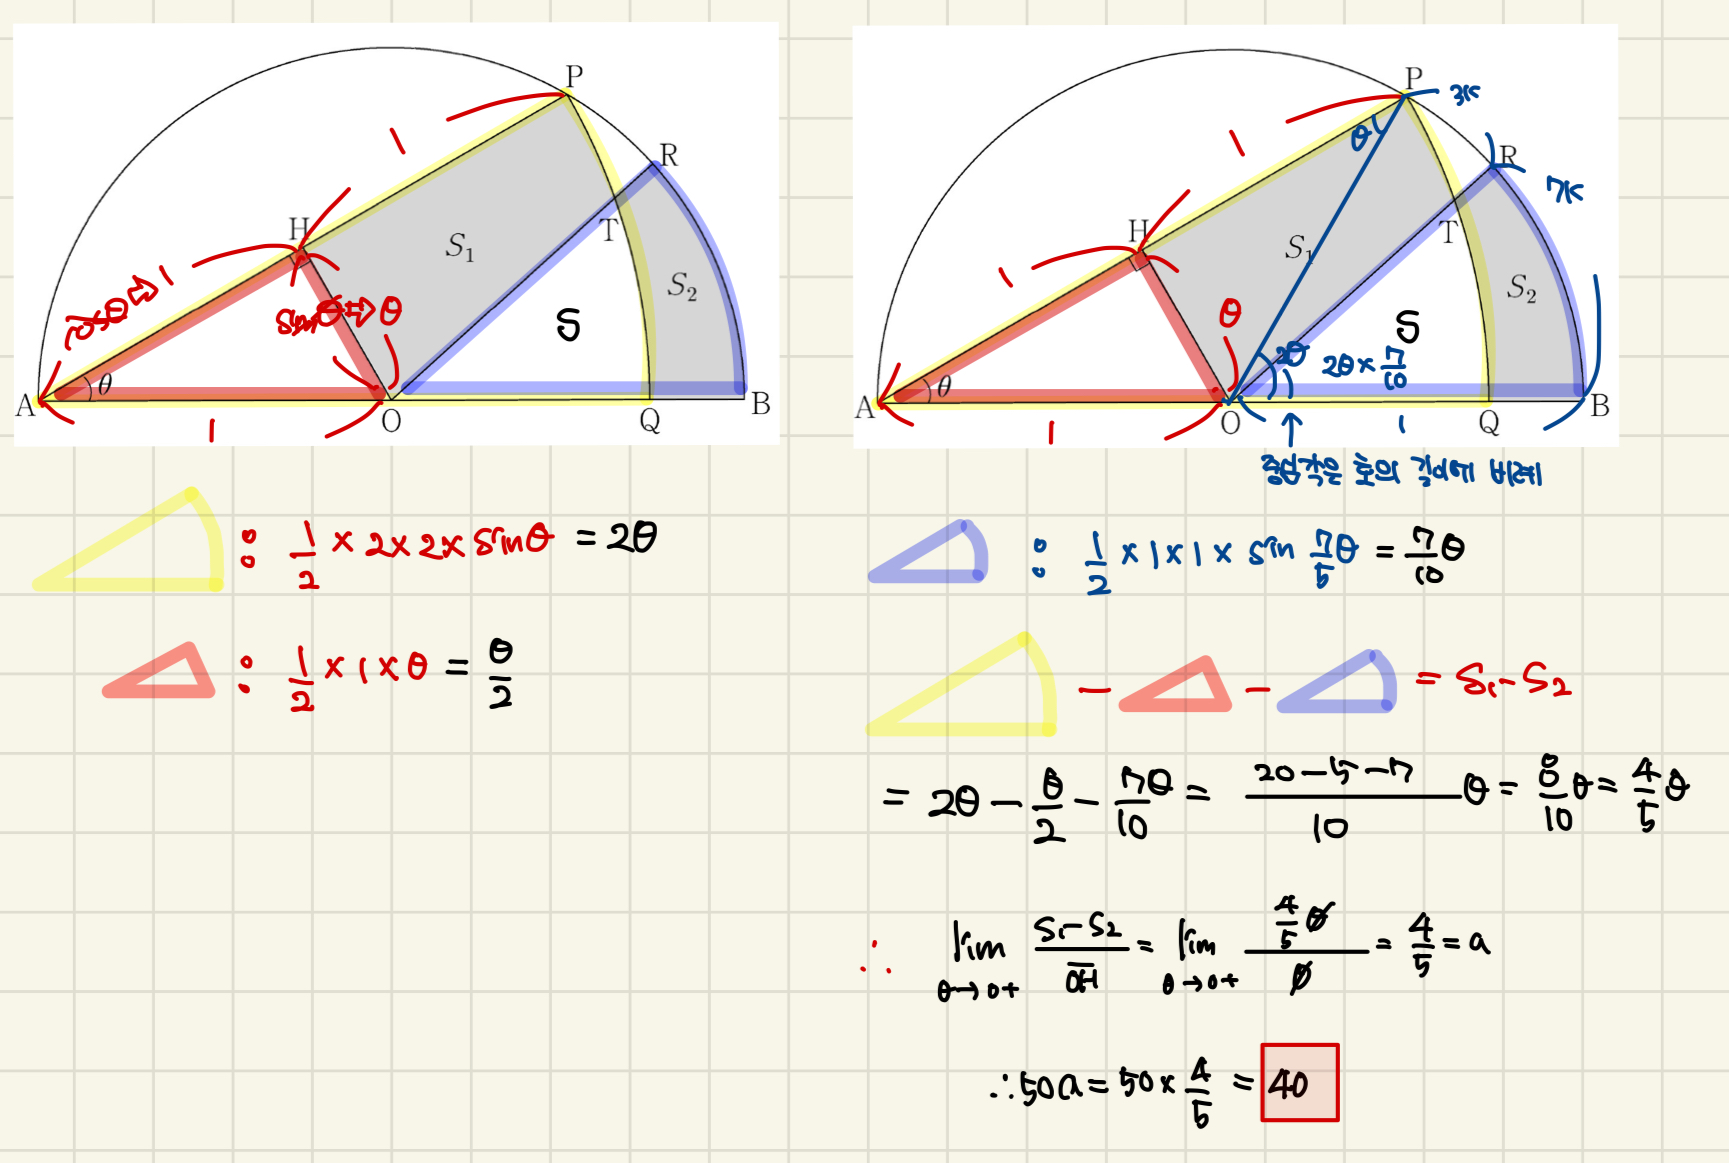 P
R
H
T
S₁
S₂
S
1
cosθ⇨1
sinθ⇨θ
θ
A
O
Q
B
1
P
3K
R
7K
H
T
S₁
S₂
S
1
1
θ
θ
θ
2θ
2θ × 7/10
A
O
Q
B
1
1
중심각은 호의 길이에 비례
: 1/2 × 2 × 2 × sinθ = 2θ
: 1/2 × 1 × θ = θ/2
: 1/2 × 1 × 1 × sin 7θ/5 = 7/10 θ
− − = S₁−S₂
= 2θ − θ/2 − 7θ/10 = (20−5−7)/10 θ = 8/10 θ = 4/5 θ
∴ lim θ→0+ (S₁−S₂)/OH̅ = lim θ→0+ (4/5 θ)/θ = 4/5 = a
∴ 50a = 50 × 4/5 = 40